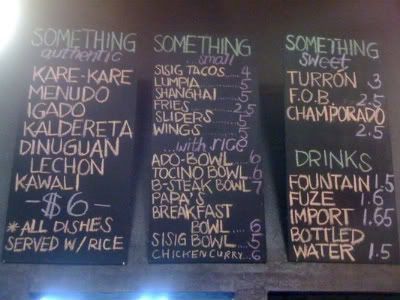 SOMETHING
authentic
KARE-KARE
MENUDO
IGADO
KALDERETA
DINUGUAN
LECHON
KAWALI
-$6-
*ALL DISHES
SERVED W/RICE
SOMETHING
...small
SISIG TACOS.....4
LUMPIA......5
SHANGHAI
FRIES......2.5
SLIDERS.....5
WINGS.....5
...with rice
ADO-BOWL..6
TOCINO BOWL 6
B-STEAK BOWL 7
PAPA'S
BREAKFAST
BOWL...6
SISIG BOWL...5
CHICKEN CURRY...6
SOMETHING
sweet
TURRÓN..3
F.O.B....2.5
CHAMPORADO
2.5
DRINKS
FOUNTAIN 1.5
FUZE..1.6
IMPORT 1.65
BOTTLED
WATER..1.5